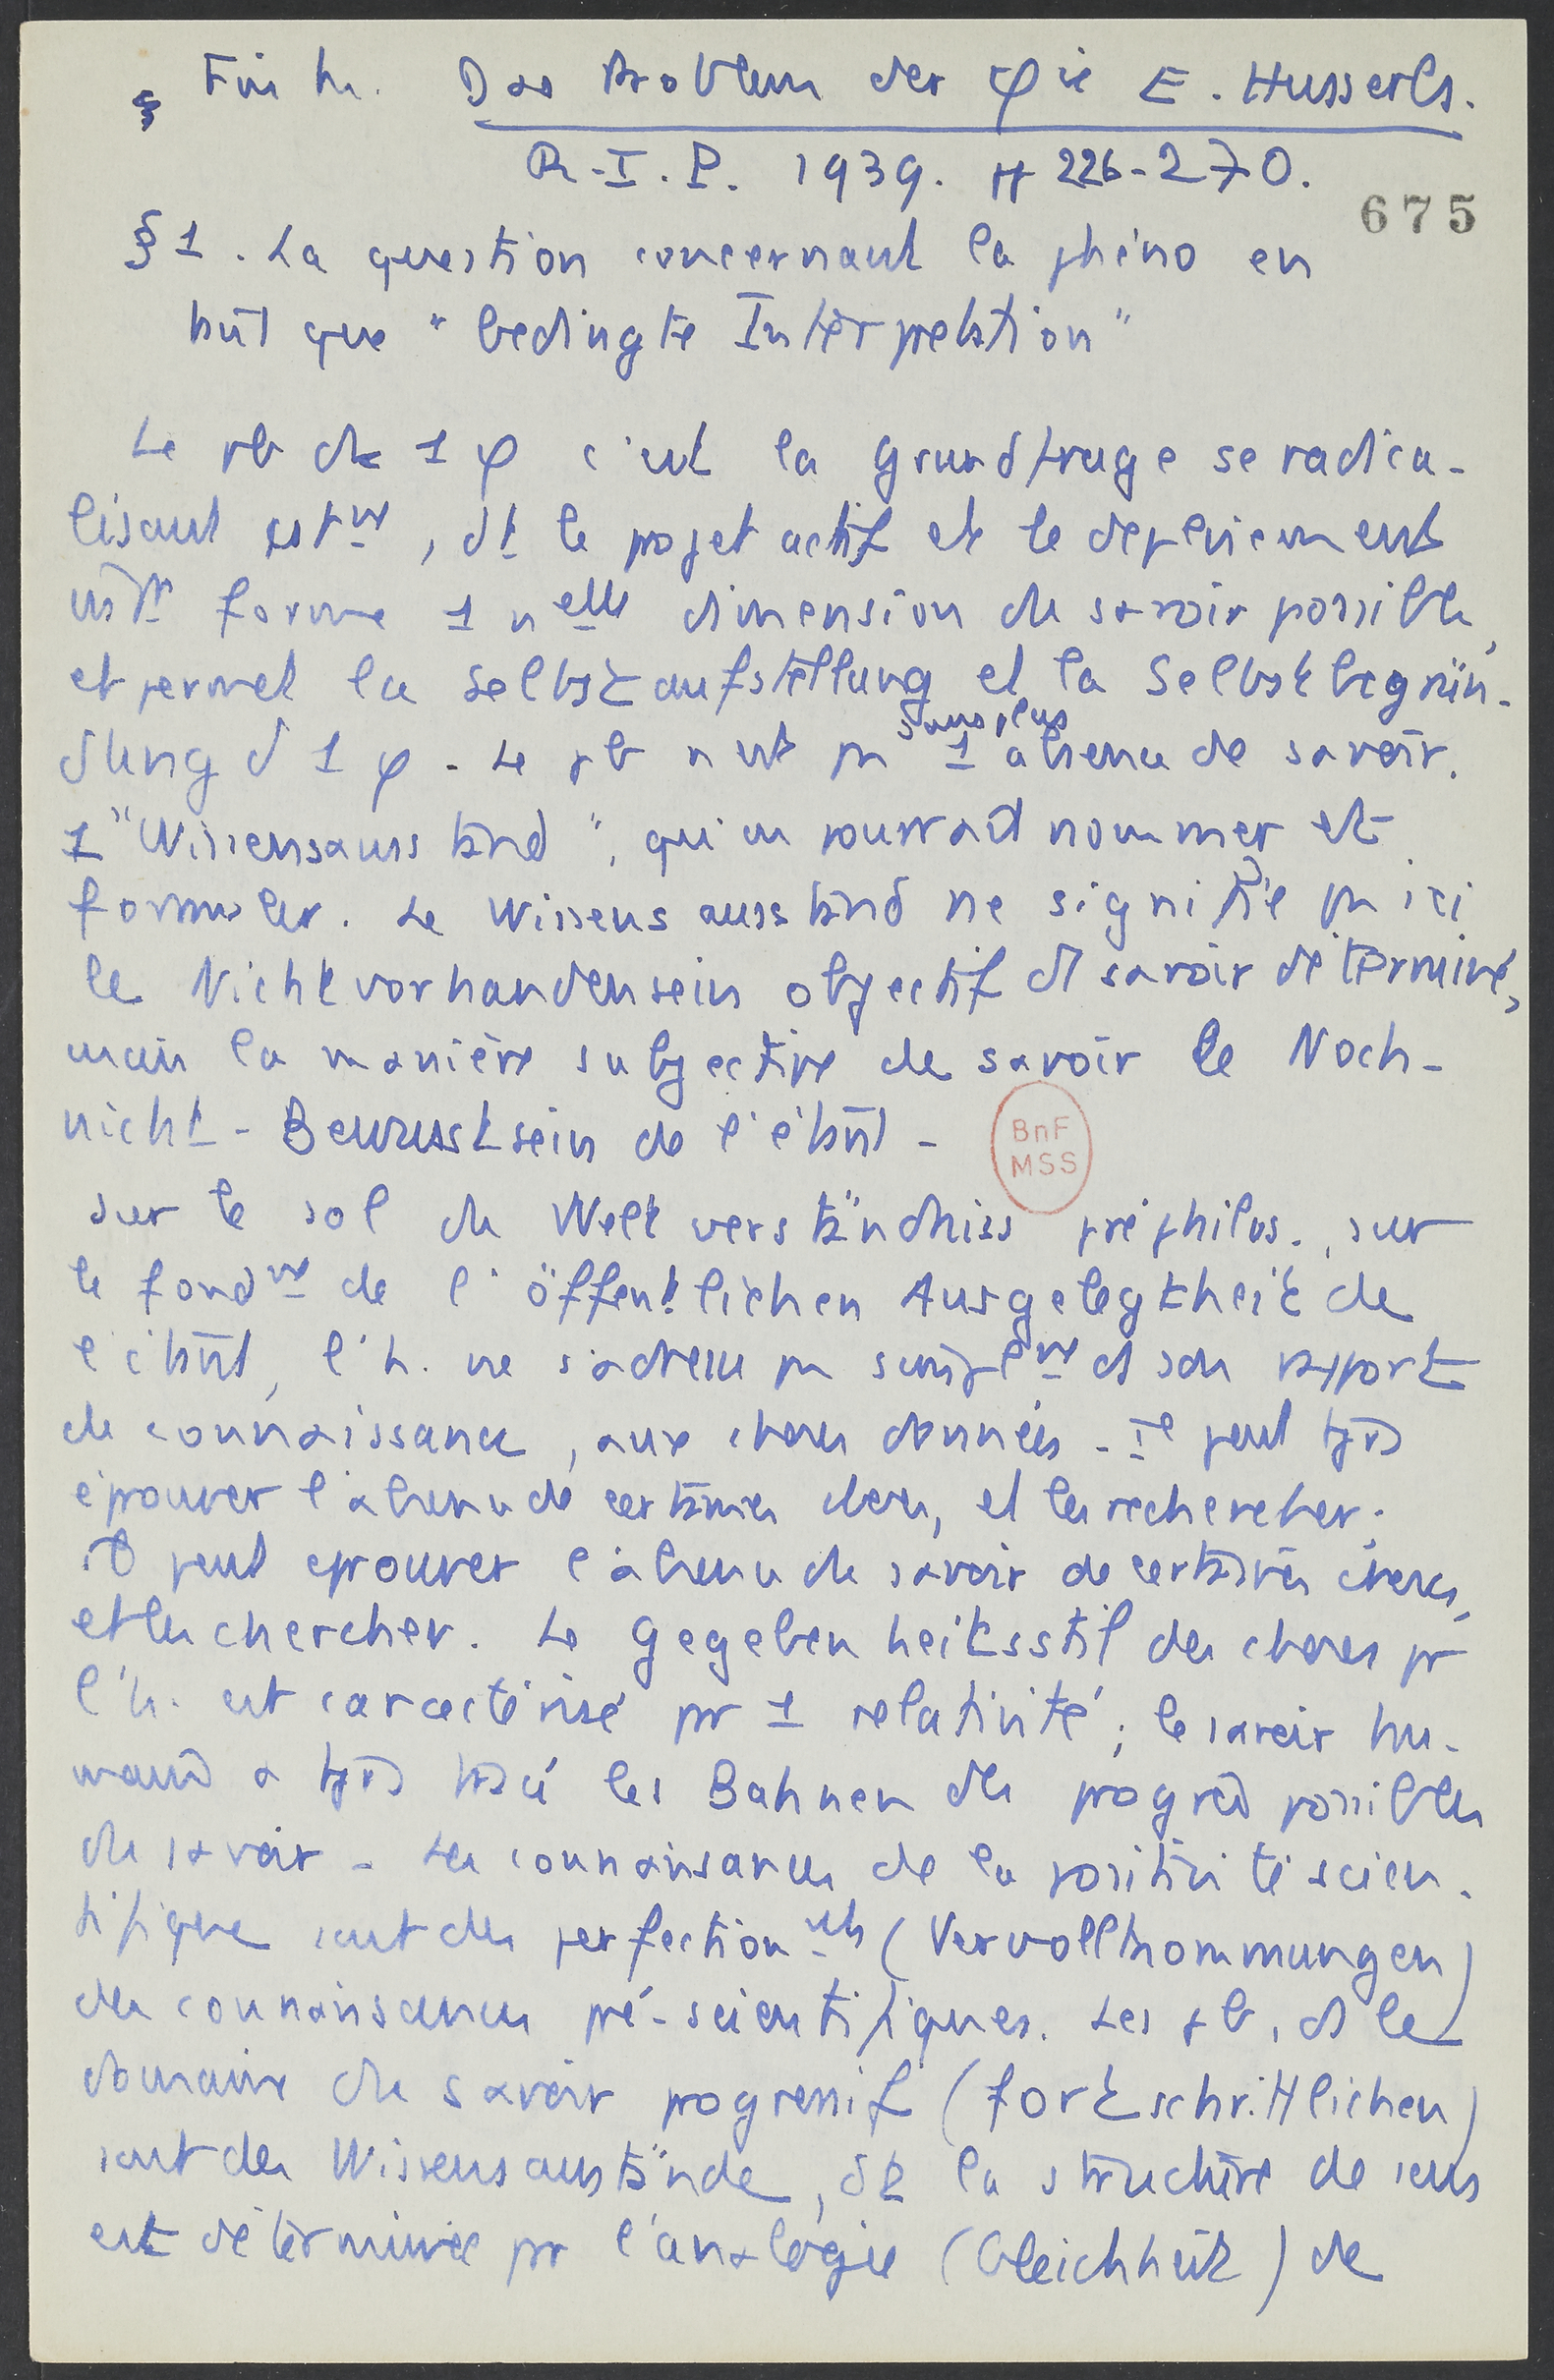 § Fink. Das Problem der φie E. Husserls.
R.I.P. 1939. pp 226-270.
675
§ 1. La question concernant la phéno en
tant que "bedingte Interpretation"
Le pb de 1 φ c'est la Grundfrage se radica-
lisant cstmt, dt le projet actif et le déploiement
forme 1 nelle dimension de savoir possible,
et permet la Selbstaufstellung et la Selbstbegrün-
dung d 1 φ. Le pb n'est pas sans plus 1 absence de savoir.
1 "Wissensausstand", qu'on pourrait nommer et
formuler. Le Wissensausstand ne signifie pas ici
le Nichtvorhandensein objectif d savoir déterminé,
mais la manière subjective de savoir le Noch-
nicht-Bewusstsein de l'étant.
BnF
MSS
Sur le sol du Weltverständniss préphilos., sur
le fondmt de l'öffentlichen Ausgelegtheit de
l'étant, l'h. ne s'adresse pas simplemt ds son rapport
de connaissance, aux choses données. Il peut tjrs
éprouver l'absence de certaines choses, et les rechercher;
il peut éprouver l'absence de savoir de certaines choses,
et les chercher. Le Gegebenheitsstil des choses pr
l'h. est caractérisé par 1 relativité; le savoir hu-
main a tjrs tracé les Bahnen des progrès possibles
du savoir. Les connaissances de la positivité scien-
tifique sont des perfectionmts (Vervollkommungen)
des connaissances pré-scientifiques. Les pb, ds le
domaine du savoir progressif (fortschrittlichen)
sont des Wissensausstände, dt la structure de sens
est déterminée par l'analogie (Gleichheit) de